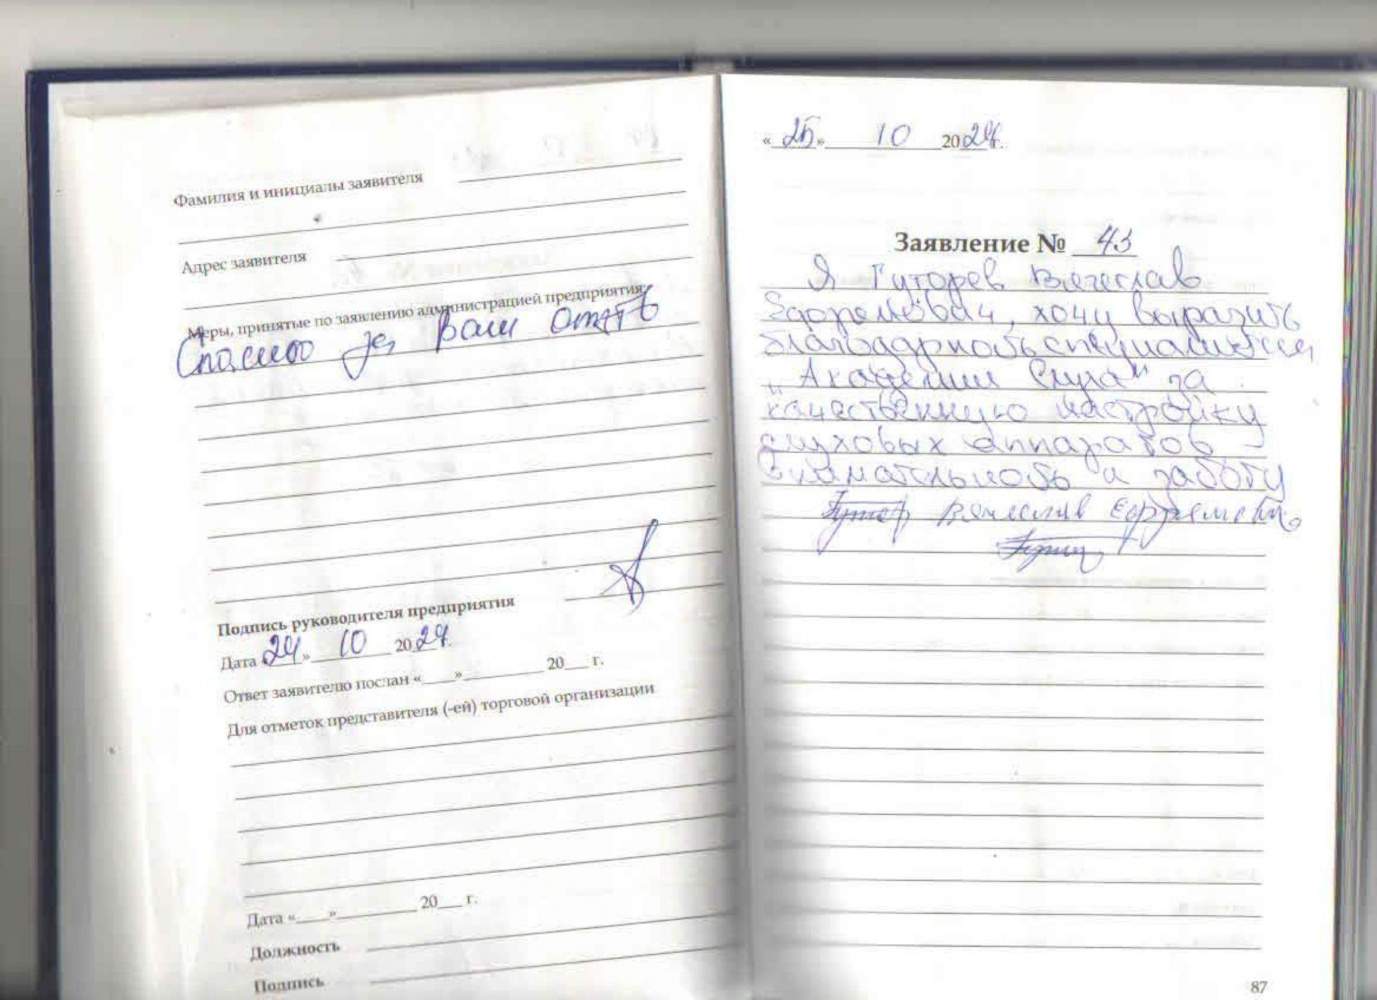 Фамилия и инициалы заявителя
Адрес заявителя
Меры, принятые по заявлению администрацией предприятия:
Спасибо за Ваш отзыв
Подпись руководителя предприятия
Дата «24» 10 2024г.
Ответ заявителю послан «___»________ 20___ г.
Для отметок представителя (-ей) торговой организации
Дата «___»________ 20___ г.
Должность
Подпись
«25» 10 2024г.
Заявление № 43
Я Гуторев Вячеслав
хочу выразить
благодарность специалистам
"Академии Слуха" за
качественную настройку
слуховых аппаратов
внимательность и заботу
Вячеслав
87